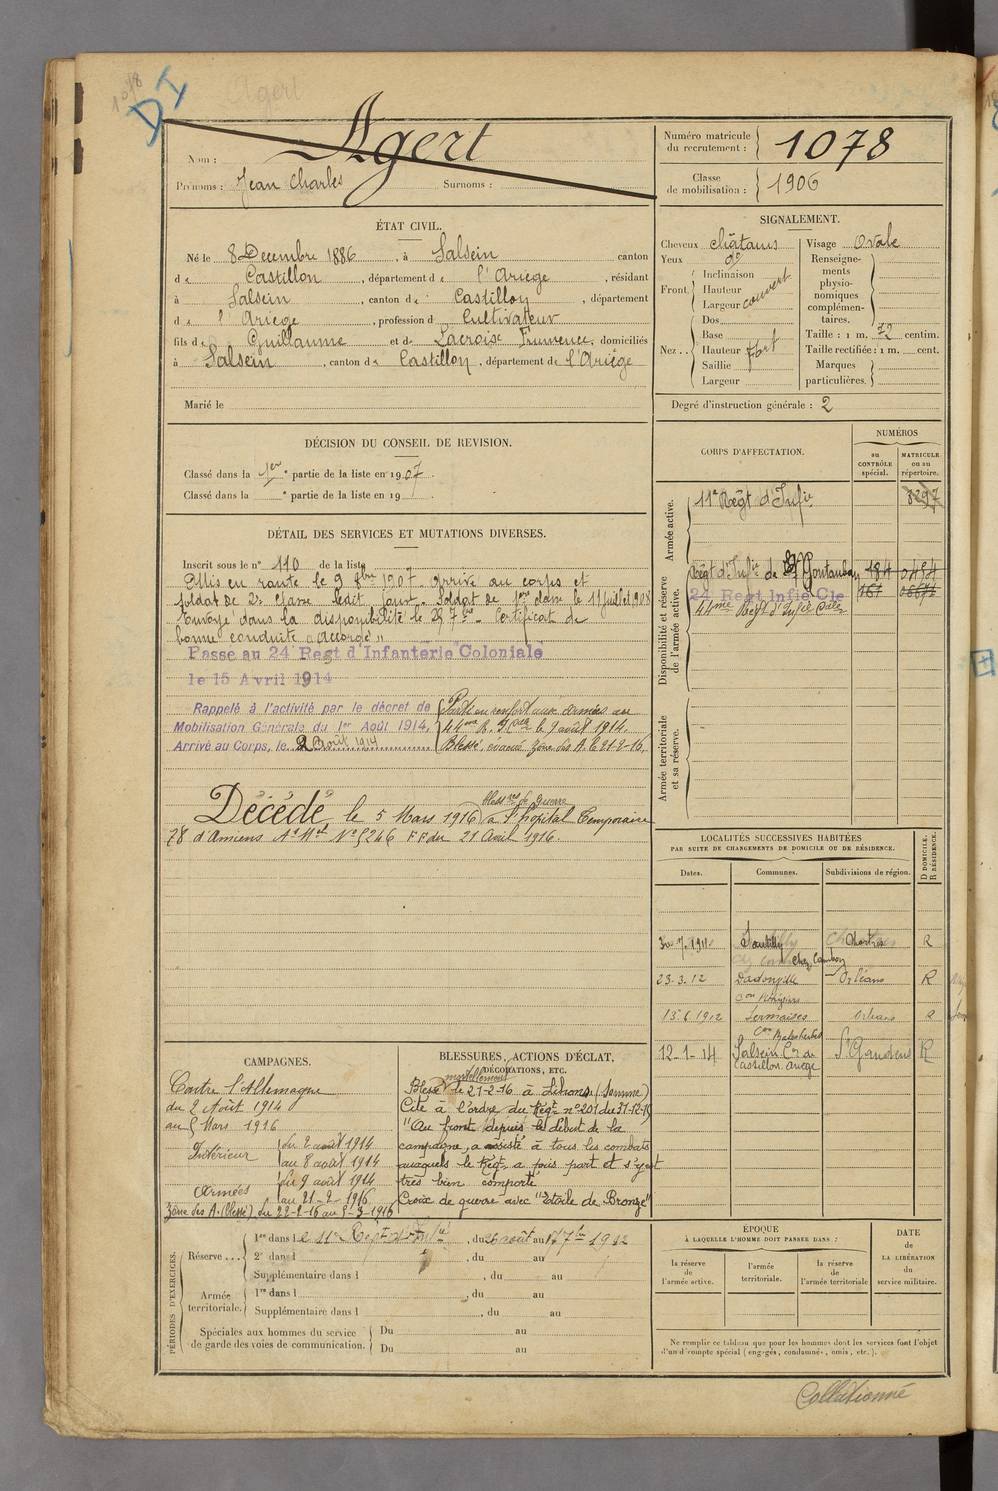 1078
DI
Agert
Nom : Agert
Prénoms : Jean Charles Surnoms :
Numéro matricule du recrutement : 1078
Classe de mobilisation : 1906
ÉTAT CIVIL.
Né le 8 Decembre 1886, à Salsein canton
de Castillon, département de l'Ariège, résidant
à Salsein, canton de Castillon, département
de l'Ariège, profession d Cultivateur
fils de Guillaume et de Lacroix Frumence, domiciliés
à Salsein, canton de Castillon, département de l'Ariège
Marié le
SIGNALEMENT.
Cheveux châtains
Yeux do
Front. Inclinaison
Hauteur
Largeur couvert
Nez.. Dos
Base
Hauteur fort
Saillie
Largeur
Visage Ovale
Renseignements physionomiques complémentaires.
Taille : 1 m. 72 centim.
Taille rectifiée : 1 m. cent.
Marques particulières.
Degré d'instruction générale : 2
DÉCISION DU CONSEIL DE REVISION.
Classé dans la 1er e partie de la liste en 1907.
Classé dans la e partie de la liste en 19
DÉTAIL DES SERVICES ET MUTATIONS DIVERSES.
Inscrit sous le n° 110 de la liste
Mis en route le 9 8bre 1907. Arrivé au corps et
soldat de 2e classe ledit jour. Soldat de 1ere classe le 11 juillet 1908
Envoyé dans la disponibilité le 7bre Certificat de
bonne conduite "Accordé"
Passé au 24 Regt d'Infanterie Coloniale
le 15 Avril 1914
Rappelé à l'activité par le décret de
Mobilisation Générale du 1er Août 1914.
Arrivé au Corps, le 2 Août 1914
Parti en renfort aux armées au
44me R. le 9 août 1914.
Blessé, évacué zone des A. le 21-2-16.
blessres de guerre
Décédé le 5 Mars 1916 à l'hôpital Temporaire
78 d'Amiens At Mel No 5246 F.F. du 21 Avril 1916.
CORPS D'AFFECTATION.
NUMÉROS
au CONTRÔLE spécial.
MATRICULE ou au répertoire.
Armée active.
11e Régt d'Infie 3297
Disponibilité et réserve de l'armée active.
Régt d'Infie de St Gontauban 184 0484
24 Regt Infie Cle 161
44me Régt d'Infie Cale
Armée territoriale et sa réserve.
LOCALITÉS SUCCESSIVES HABITÉES
PAR SUITE DE CHANGEMENTS DE DOMICILE OU DE RÉSIDENCE.
Dates. Communes. Subdivisions de région. D DOMICILE. R RÉSIDENCE.
Chartres R
23.3.12 Dadonville Orléans R
13 6 1912 Sermaises Orléans R
Con Malesherbes
12-1-14 Salsein Con de Castillon Ariège St Gaudens R
CAMPAGNES.
Contre l'Allemagne
du 2 Août 1914
au 5 Mars 1916
Intérieur du 2 août 1914
au 8 août 1914
Armées du 9 août 1914
au 21-2-1916
Zone des A. (blessé) du 22-2-16 au 5-3-1916
BLESSURES, ACTIONS D'ÉCLAT,
DÉCORATIONS, ETC.
mortellement
Blessé le 21-2-16 à Lihons (Somme)
Cité à l'ordre du Régt n° 201 du 31-12-15
"Au front depuis le début de la
campagne, a assisté à tous les combats
auxquels le Régt a pris part et s'y est
très bien comporté
Croix de guerre avec "Etoile de Bronze"
PÉRIODES D'EXERCICES.
Réserve... 1re dans le 11e Regt d'Infie, du 26 août au 17 7bre 1912
2e dans l, du au
Supplémentaire dans l, du au
Armée territoriale. 1re dans l, du au
Supplémentaire dans l, du au
Spéciales aux hommes du service de garde des voies de communication. Du au
Du au
ÉPOQUE
À LAQUELLE L'HOMME DOIT PASSER DANS :
la réserve de l'armée active.
l'armée territoriale.
la réserve de l'armée territoriale
DATE de LA LIBÉRATION du service militaire.
Ne remplir ce tableau que pour les hommes dont les services font l'objet
d'un décompte spécial (engagés, condamnés, omis, etc.).
Collationné